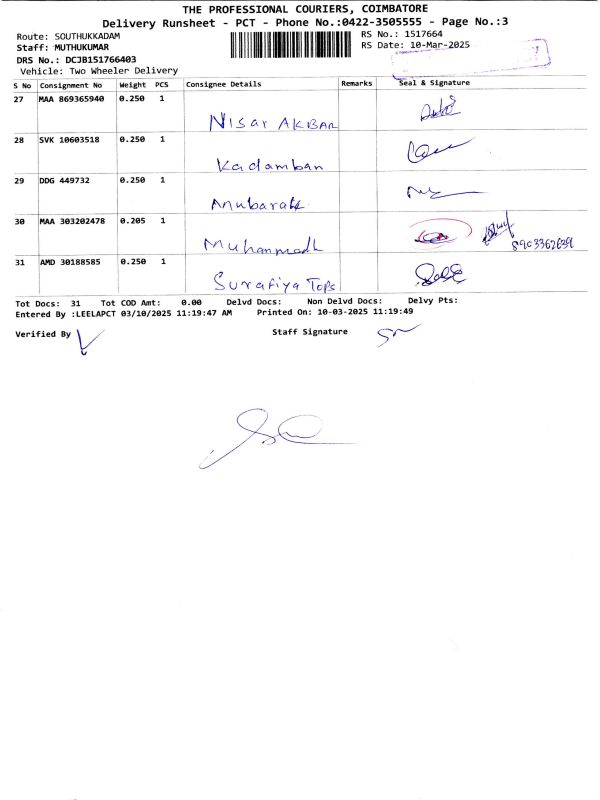 THE PROFESSIONAL COURIERS, COIMBATORE
Delivery Runsheet - PCT - Phone No.:0422-3505555 - Page No.:3
Route: SOUTHUKKADAM RS No.: 1517664
Staff: MUTHUKUMAR RS Date: 10-Mar-2025
DRS No.: DCJB151766403
Vehicle: Two Wheeler Delivery
S No Consignment No Weight PCS Consignee Details Remarks Seal & Signature
27 MAA 869365940 0.250 1 Nisar AKBAR
28 SVK 10603518 0.250 1 Kadamban
29 DDG 449732 0.250 1 Mubarak
30 MAA 303202478 0.205 1 Muhammadh
31 AMD 30188585 0.250 1 Surafiya Tops
Tot Docs: 31 Tot COD Amt: 0.00 Delvd Docs: Non Delvd Docs: Delvy Pts:
Entered By :LEELAPCT 03/10/2025 11:19:47 AM Printed On: 10-03-2025 11:19:49
Verified By Staff Signature